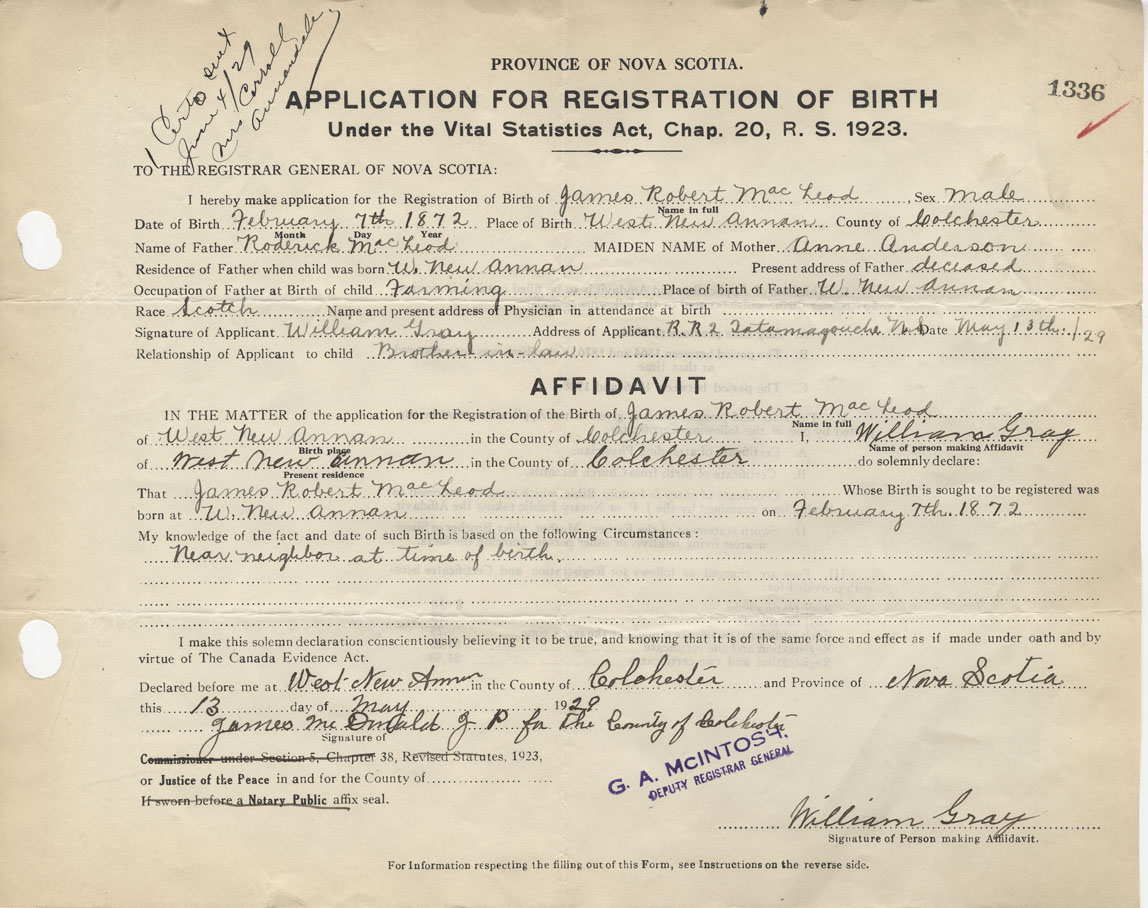 1 Certo sent
June 4/29
Mrs Carroll
Annandale,
PROVINCE OF NOVA SCOTIA.
1336
APPLICATION FOR REGISTRATION OF BIRTH
Under the Vital Statistics Act, Chap. 20, R. S. 1923.
TO THE REGISTRAR GENERAL OF NOVA SCOTIA:
I hereby make application for the Registration of Birth of James Robert MacLeod, Sex Male
Name in full
Date of Birth February 7th 1872 Place of Birth West New Annan County of Colchester
Month Day Year
Name of Father Roderick MacLeod MAIDEN NAME of Mother Anne Anderson
Residence of Father when child was born W. New Annan Present address of Father deceased
Occupation of Father at Birth of child Farming Place of birth of Father W. New Annan
Race Scotch Name and present address of Physician in attendance at birth
Signature of Applicant William Gray Address of Applicant R.R.2 Tatamagouche N.S Date May 13th /29
Relationship of Applicant to child Brother-in-law
AFFIDAVIT
IN THE MATTER of the application for the Registration of the Birth of James Robert MacLeod
Name in full
of West New Annan in the County of Colchester I, William Gray
Birth place Name of person making Affidavit
of West New Annan in the County of Colchester do solemnly declare:
Present residence
That James Robert MacLeod Whose Birth is sought to be registered was
born at W. New Annan on February 7th. 1872
My knowledge of the fact and date of such Birth is based on the following Circumstances:
Near neighbor at time of birth.
I make this solemn declaration conscientiously believing it to be true, and knowing that it is of the same force and effect as if made under oath and by
virtue of The Canada Evidence Act.
Declared before me at West New Annan in the County of Colchester and Province of Nova Scotia
this 13 day of May 1929
James McDonald J P for the County of Colchester
Signature of
Commissioner under Section 5, Chapter 38, Revised Statutes, 1923,
or Justice of the Peace in and for the County of
If sworn before a Notary Public affix seal.
G. A. McINTOSH.
DEPUTY REGISTRAR GENERAL
William Gray
Signature of Person making Affidavit.
For Information respecting the filling out of this Form, see Instructions on the reverse side.